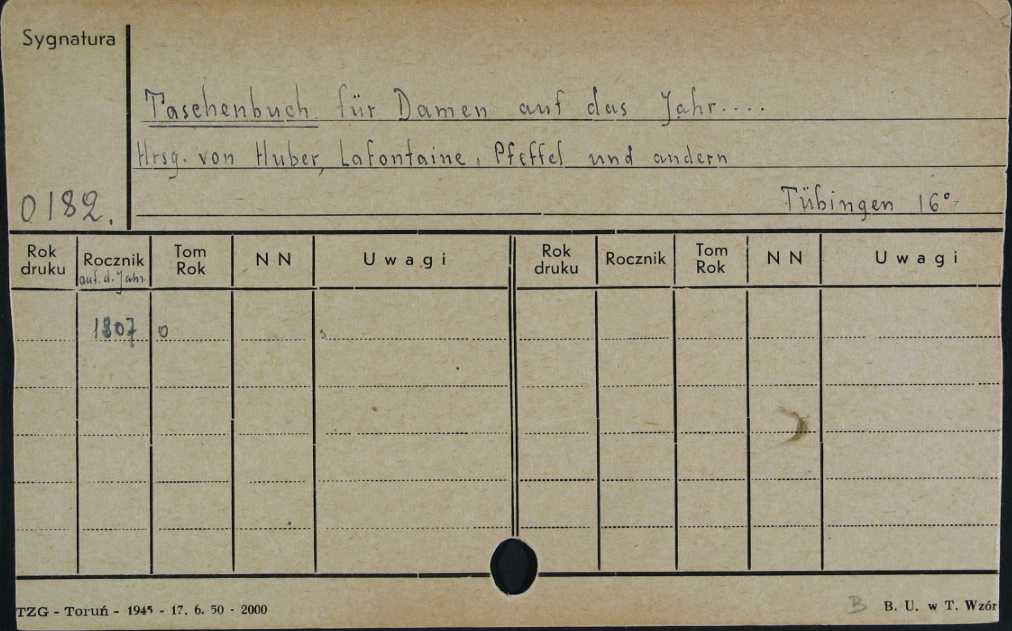 Sygnatura
Taschenbuch für Damen auf das Jahr....
Hrsg. von Huber, Lafontaine, Pfeffel und andern
0182.
Tübingen 16°
Rok druku Rocznik auf. d. Jahr Tom Rok N N Uwagi Rok druku Rocznik Tom Rok N N Uwagi
1807 0
TZG - Toruń - 1945 - 17. 6. 50 - 2000
B B. U. w T. Wzór